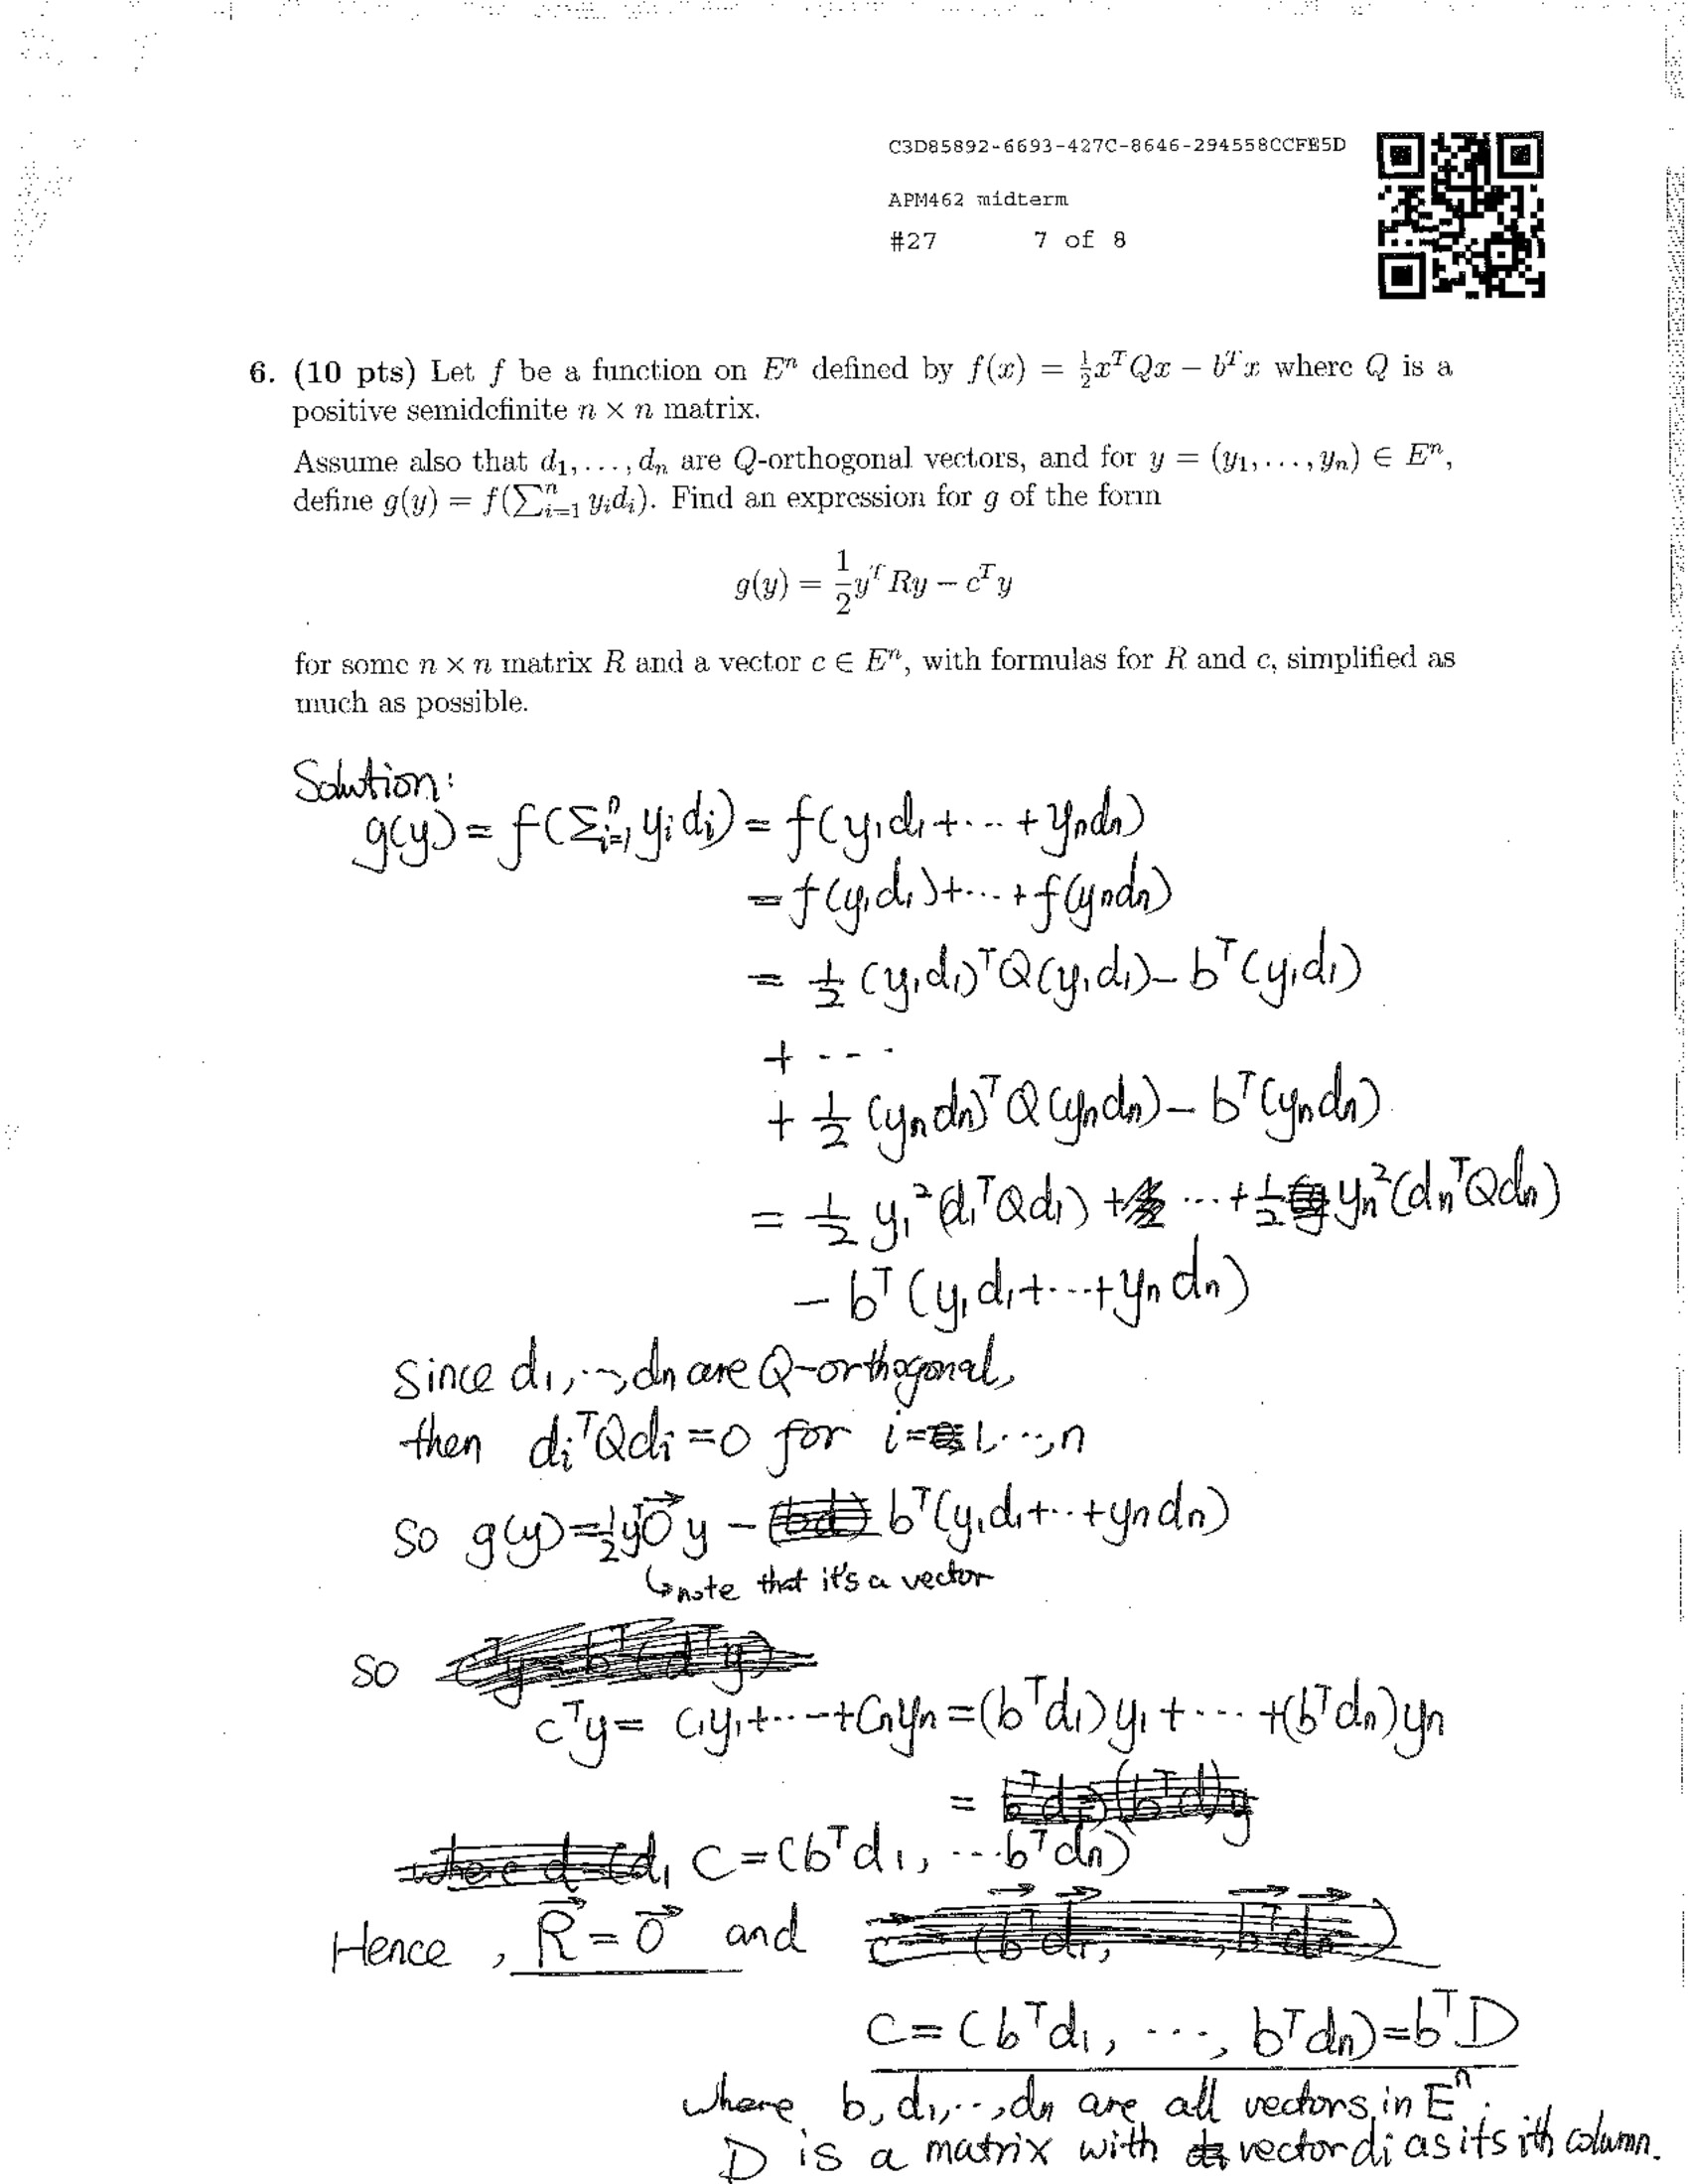 C3D85892-6693-427C-8646-294558CCFE5D
APM462 midterm
#27 7 of 8
6. (10 pts) Let f be a function on Eⁿ defined by f(x) = ½xᵀQx − bᵀx where Q is a
positive semidefinite n × n matrix.
Assume also that d₁, . . . , dₙ are Q-orthogonal vectors, and for y = (y₁, . . . , yₙ) ∈ Eⁿ,
define g(y) = f(∑ⁿᵢ₌₁ yᵢdᵢ). Find an expression for g of the form
g(y) = ½yᵀRy − cᵀy
for some n × n matrix R and a vector c ∈ Eⁿ, with formulas for R and c, simplified as
much as possible.
Solution:
g(y) = f(Σⁿᵢ₌₁ yᵢdᵢ) = f(y₁d₁+...+yₙdₙ)
= f(y₁d₁)+...+f(yₙdₙ)
= ½(y₁d₁)ᵀQ(y₁d₁) − bᵀ(y₁d₁)
+ ...
+ ½(yₙdₙ)ᵀQ(yₙdₙ) − bᵀ(yₙdₙ)
= ½y₁²(d₁ᵀQd₁) + ... + ½yₙ²(dₙᵀQdₙ)
− bᵀ(y₁d₁+...+yₙdₙ)
Since d₁,...,dₙ are Q-orthogonal,
then dᵢᵀQdᵢ=0 for i=1,...,n
So g(y)=½yᵀ0⃗y − bᵀ(y₁d₁+...+yₙdₙ)
↳note that it's a vector
So
cᵀy = c₁y₁+...+cₙyₙ = (bᵀd₁)y₁+...+(bᵀdₙ)yₙ
=
C=(bᵀd₁, ...bᵀdₙ)
Hence, R⃗=0⃗ and
C=(bᵀd₁, ..., bᵀdₙ)=bᵀD
where b,d₁,...,dₙ are all vectors in Eⁿ.
D is a matrix with vector dᵢ as its ith column.